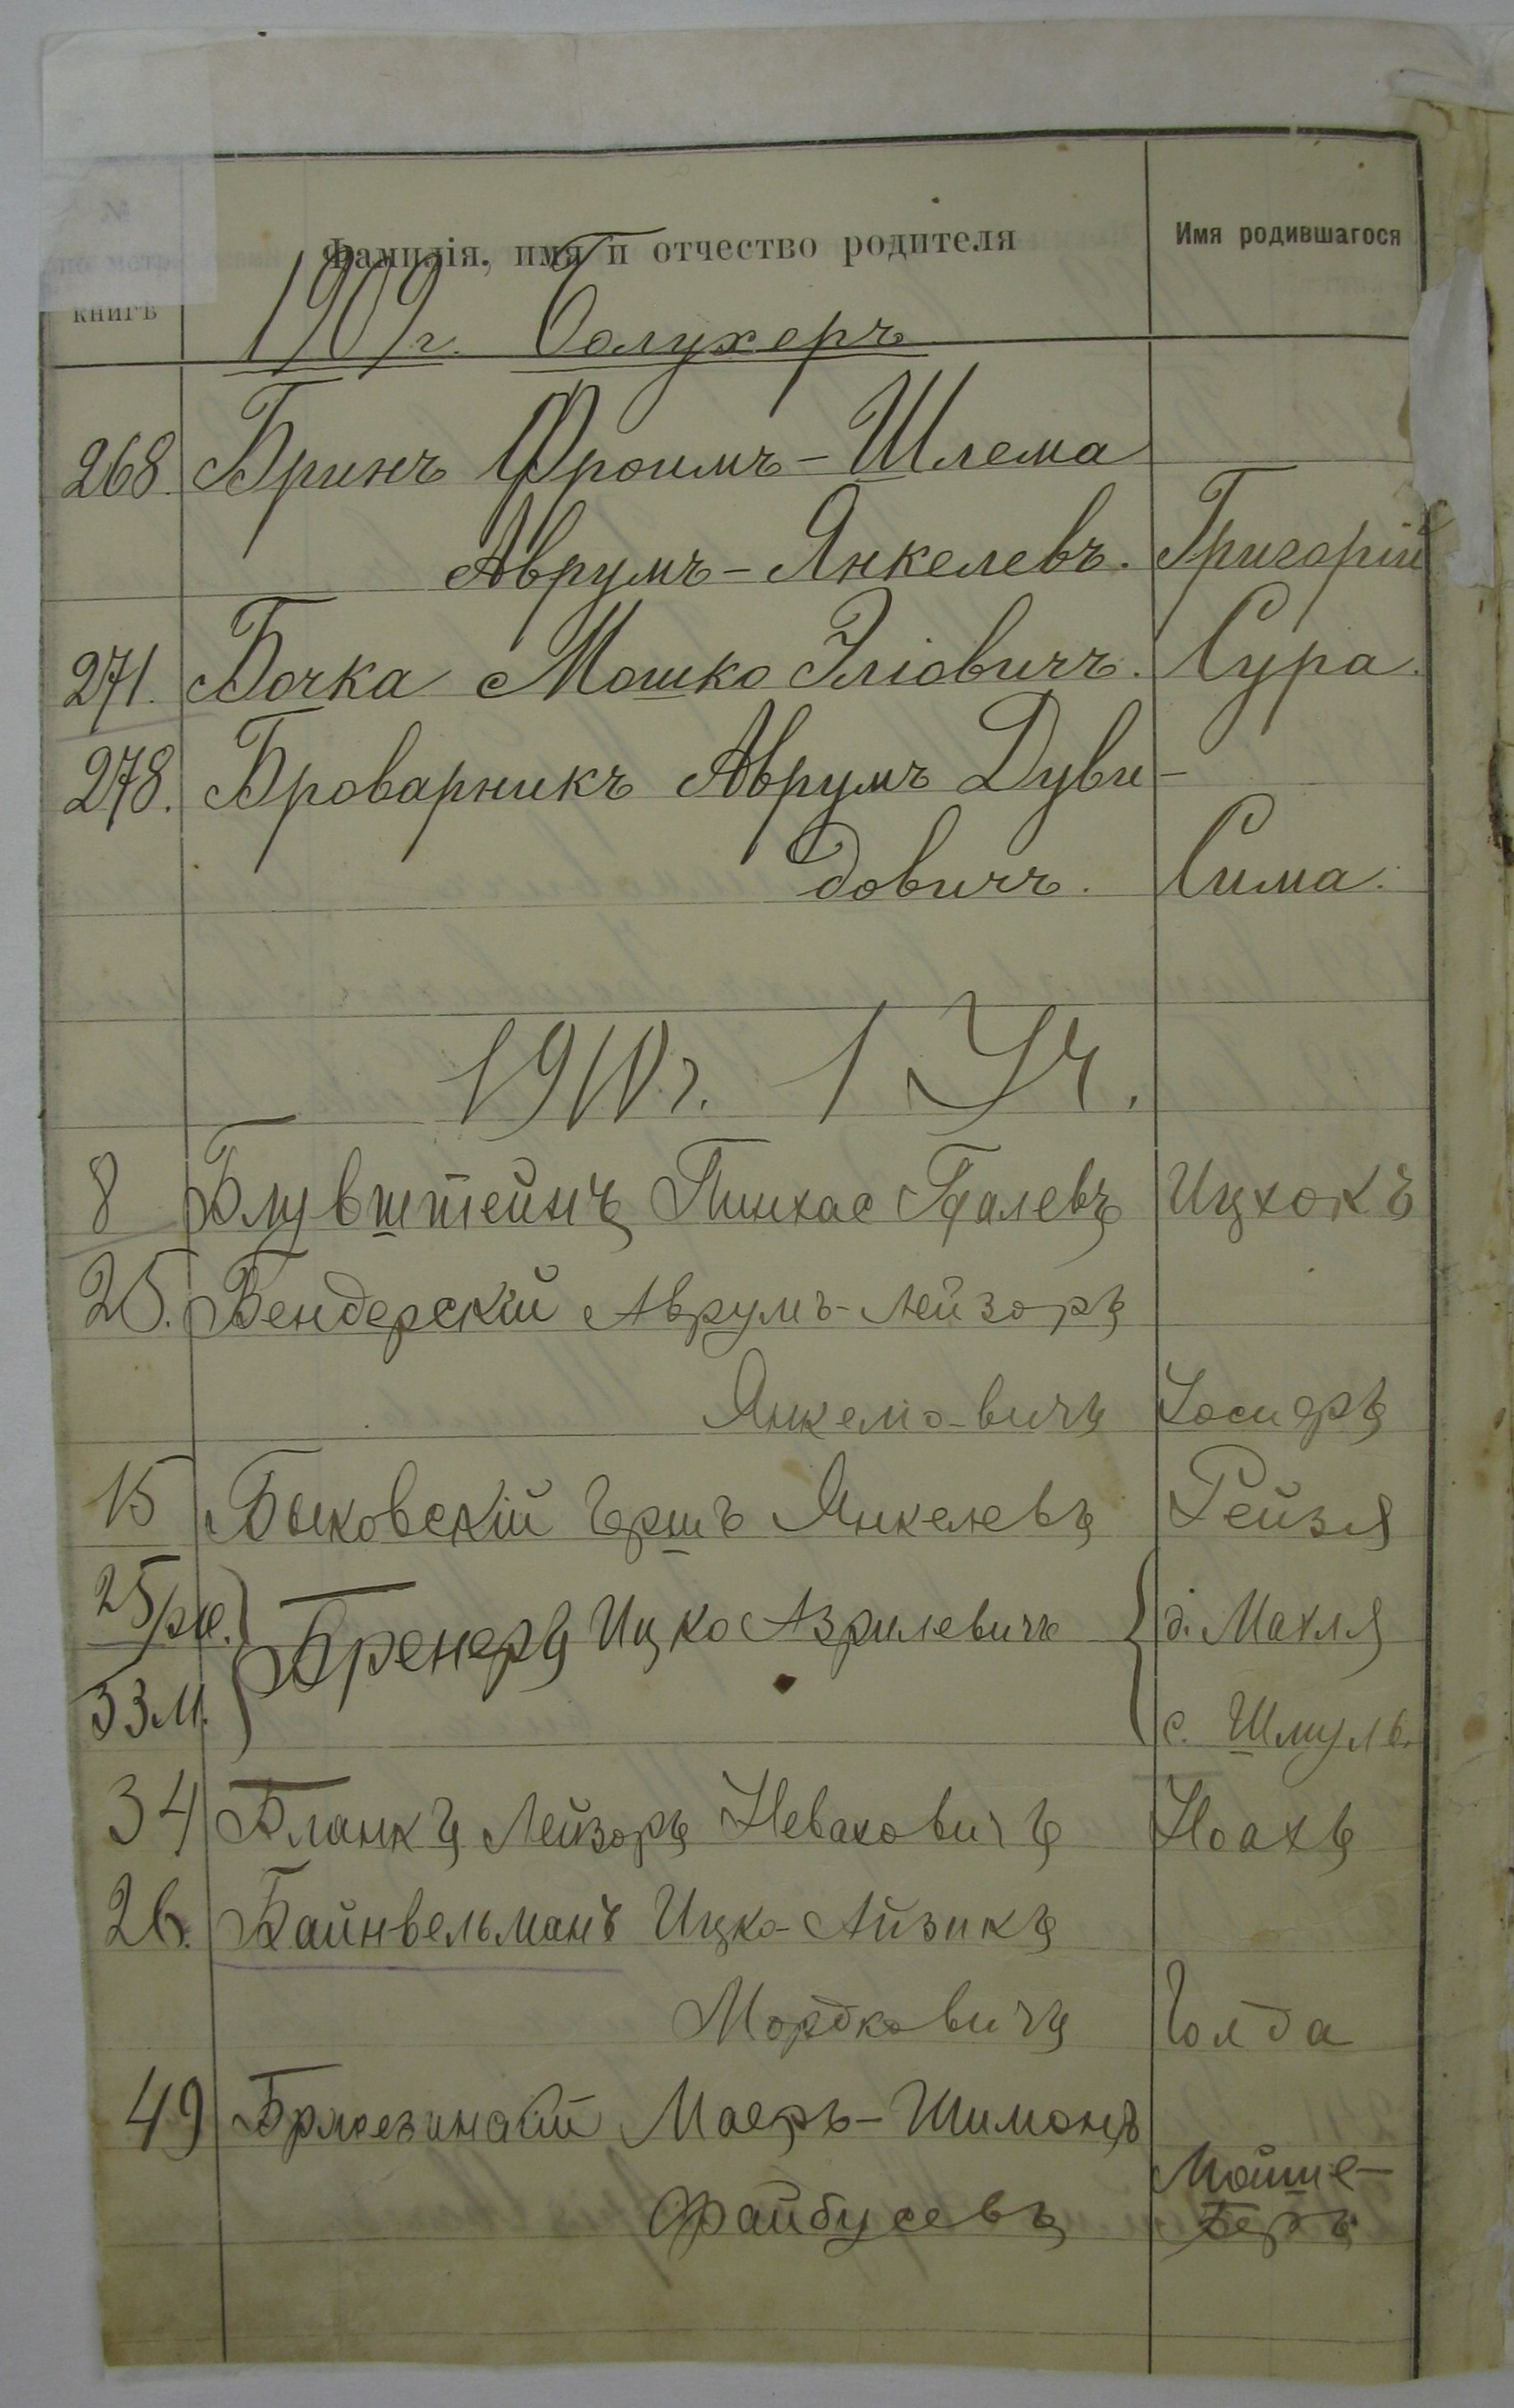 №
по метр.
книгѣ
Фамилія, имя и отчество родителя
Имя родившагося
1909 г. Болухеръ
268. Бринъ Фроимъ-Шлема
Аврумъ-Янкелевъ. Григорій
271. Бочка Мошко Эліовичъ. Сура.
278. Броварникъ Аврумъ Дуви-
довичъ. Сима.
1910 г. 1 Уч.
8 Блувштейнъ Пинхас Гдалевъ Ицхокъ
25. Бендерскій Аврумъ-Лейзоръ
Янкелiовичъ Іосиеръ
15 Быковскій Гершъ Янкелевъ Рейзя
25/рж. Бренеръ Ицко Азрилевичъ д. Махля
33 м. с. Шмуль.
34 Бланкъ Лейзоръ Неваховичъ Ноахъ
26. Байнвельманъ Ицко-Айзикъ
Мордковичъ Голда
49 Маеръ-Шимонъ
Файбусевъ Мойше-
Беръ